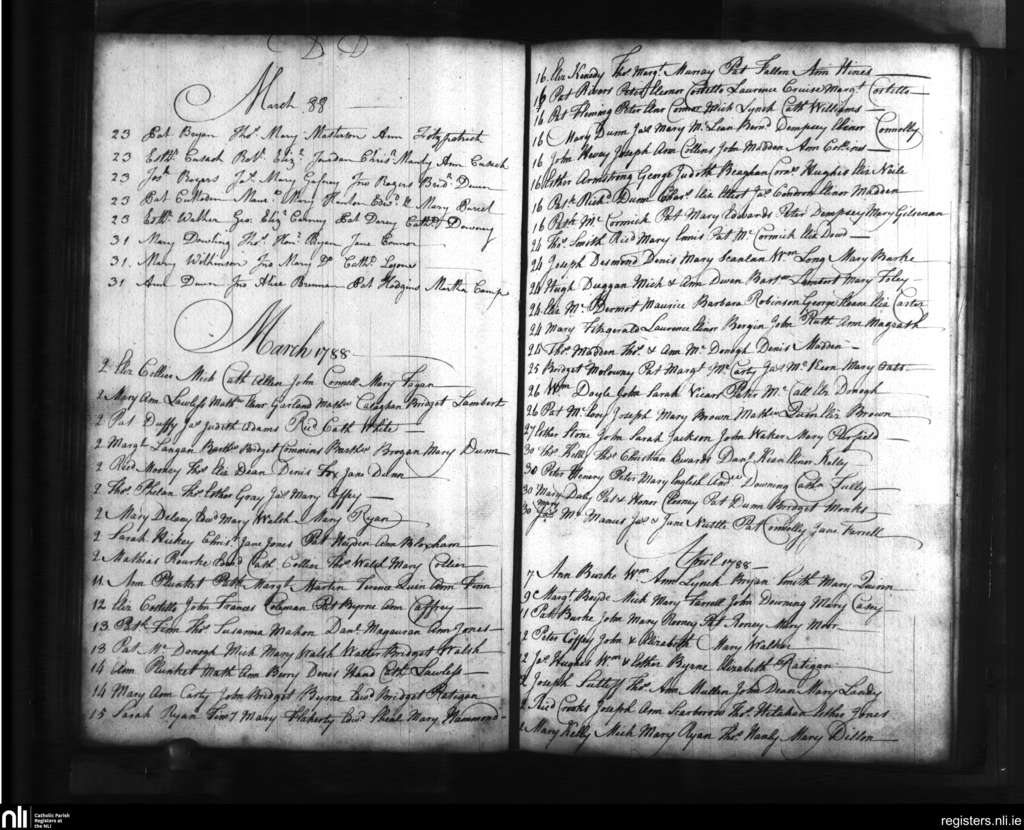 March 88
23 Pat Bryan Thos. Mary Masterson Ann Fitzpatrick
23 Esthr. Cusack Robt. Elizh. Jordan Christ Ann Cusack
23 Josh. Rogers Mary Gafney Jno Rogers Bridt. Dunn
23 Pat Mary Hanlon Mary
23 Esthr. Walker Geo. Elizh. Pat Darcy Cathe. Downey
31 Mary Dowling Thos. Honr. Ryan Jane Connor
31. Mary Wilkinson Jno Mary Do. Cathe. Lyons
31 Ann Dunn Jno Alice Brennan Pat Hodgins Martha Camp
March 1788
2 Eliz Collier Mich Cath Allen John Connell Mary Fagan
2 Mary Ann Lawless Mathw Elenr Garland Mathw Callaghan Bridget Lambert
2 Pat Duffy Jas Judith Adams Ricd Cath White
2 Margt. Langan Barthw Bridget Commins Barthw Brogan Mary Dunn
2 Ricd Mooney Thos Elia Dean Denis Fox Jane Dunn
2 Thos Phelan Thos Esther Gray Jas Mary Coffey
2 Mary Delany Edwd Mary Walsh Mary Ryan
2 Sarah Hickey Chrisr. Jane Jones Pat Heyden Ann Bloxham
2 Mathias Rourke Edwd Cath Collier Thos Walsh Mary Collier
11 Ann Plunket Patk. Margt. Martin Terence Quin Ann Finn
12 Eliz Costello John Frances Coleman Pat Byrne Ann Caffrey
13 Patk Finn Thos Susanna Mahon Danl. Magauran Ann Jones
13 Pat. Mc Donogh Mich Mary Walsh Walter Bridget Walsh
14 Ann Plunket Math Ann Berry Denis Hand Cath Lawless
14 Mary Ann Corty John Bridget Byrne Edwd Bridget Ratigan
15 Sarah Ryan Timy Mary Flaherty Edwd Mary Hammond
16. Eliz Kenedy Thos Margt. Murray Pat Fallon Ann Hines
16 Pat Rivers Peter Eleanor Costello Laurence Cruise Margt Costello
16 Pat Fleming Peter Elenr Connor Mich Lynch Cath Williams
16 Mary Dunn Jas Mary Mc Lean Bernd. Dempsey Elenor Connolly
16 John Hevey Joseph Ann Collins John Madden Ann
16 Esther Armstrong George Judith Reaghan Hughes Elia Neile
16 Patk Richd. Dunn Chars. Elia Jas Condron Elinor Madden
16 Patk Mc. Cormick Pat Mary Edwards Peter Dempsey Mary Gilsenan
24 Thos. Smith Ricd Mary Ennis Pat Mc. Cormick Elia Doud
24 Joseph Desmond Denis Mary Scanlan Wm Long Mary Burke
24 Hugh Duggan Mich & Ann Dwen Bartw Lambert Mary Foley
24 Elia Mc. Dermot Maurice Barbara Robinson George Keane Elia Carter
24 Mary Fitzgerald Laurence Elinor Bergin John Ruth Ann Magrath
24 Thos. Madden Thos. & Ann Mc. Donogh Denis Madden
25 Bridget Molowney Pat Margt Mc.Carty Jas Mc Kern Mary Oats
26 Wm Doyle John Sarah Vicars Peter Mc. Call Elia Donogh
26 Pat Mc.Long Joseph Mary Brown Mathw Elia Brown
27 Esther Stone John Sarah Jackson John Waker Mary
30 Thos Kelly Thos Christian Edwards Danl. Elinor Kelly
30 Peter Henery Peter Mary English Andrw Downing Cath. Tully
30 Mary Daly Pat & Honor Pat Dunn Bridget Monks
Mary
30 Mc. Manus Jas & June Nuttle Pat Connolly Jane Farrell
April 1788
7 Ann Burke Wm Ann Lynch Bryan Smith Mary Quinn
9 Margt. Boyde Mich Mary Farrell John Downing Mary Casey
11 Patk Burke John Mary Rorney Pat Rorney Mary Moor
2 Peter Coffey John & Elizabeth Mary Walker
12 Jas Hughes Wm & Esther Byrne Elizabeth Ratigan
Joseph Sutliff Thos. Ann Mullen John Dean Mary Landy
Ricd Crooks Joseph Ann Thos. Esther Jones
Mary Kelly Mich Mary Ryan Thos. Hanly Mary Dillon
nli
Catholic Parish
Registers at
the NLI
registers.nli.ie